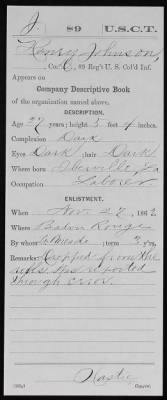 J. 89 U.S.C.T.
Henry Johnson,
Co. C, 89 Reg't U. S. Col'd Inf.
Appears on
Company Descriptive Book
of the organization named above.
DESCRIPTION.
Age 27 years; height 5 feet 4 inches.
Complexion Dark
Eyes Dark; hair Dark
Where born La
Occupation Laborer
ENLISTMENT.
When Nov. 27, 1862.
Where Baton Rouge
By whom term 3 y'rs.
Remarks: Dropped from the
rolls, has reported
through error.
Hastie